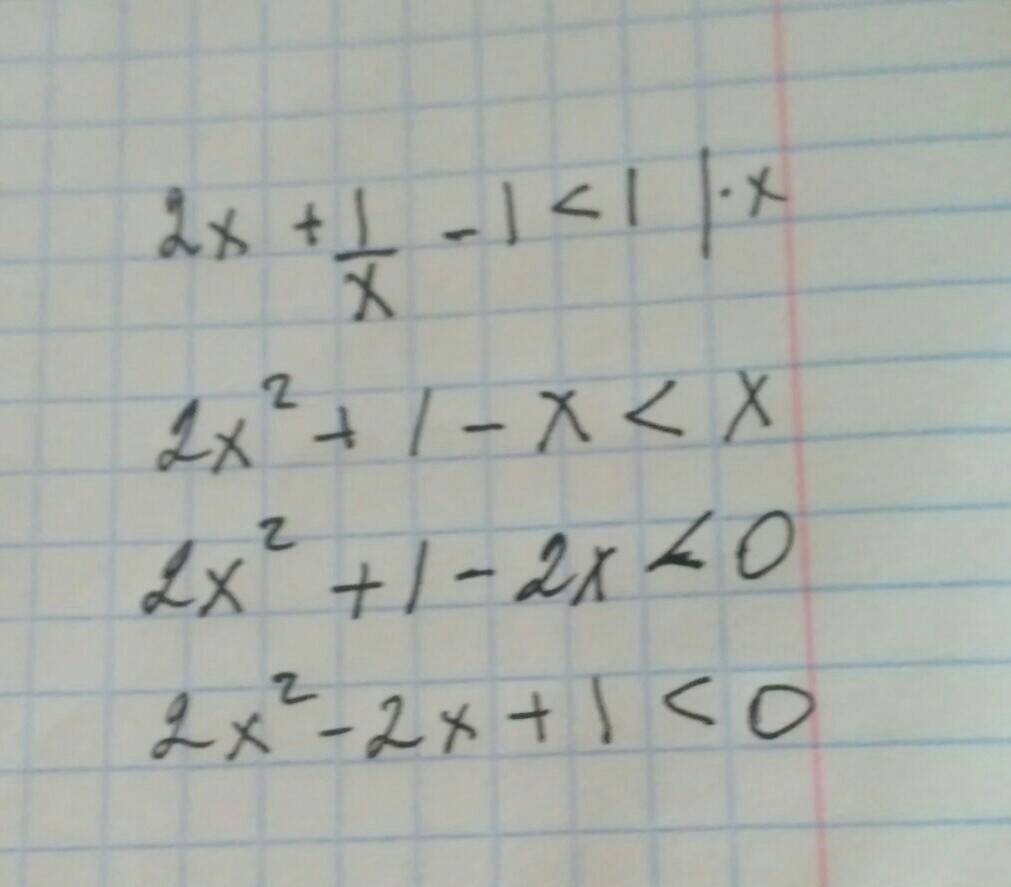 2x + 1/x - 1 < 1 | · x
2x² + 1 - x < x
2x² + 1 - 2x < 0
2x² - 2x + 1 < 0